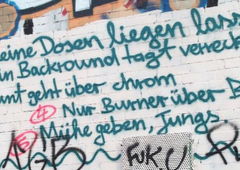 eine Dosen liegen lass
in Backround tagt verreck
unt geht über chrom
④ Nur Burner über B
⑤ Mühe geben, Jungs
FUK U